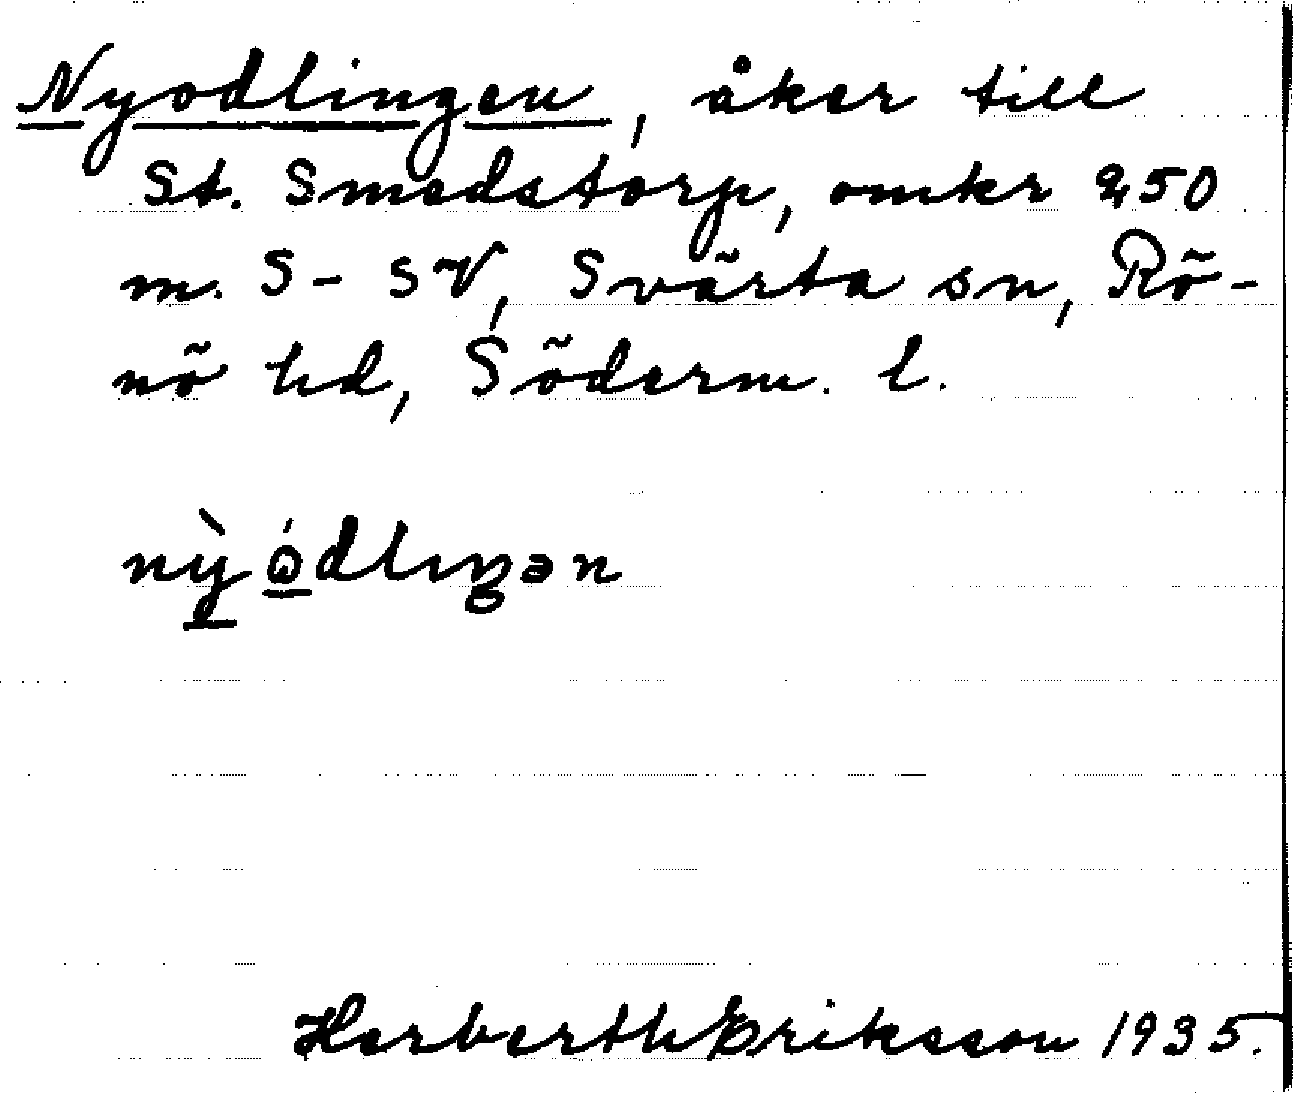 Nyodlingen, åker till
St. Smedstorp, omkr 250
m. S - SV, Svärta sn, Rö-
nö hd, Söderm. l.
nỳ ó̱dlıŋən
Herberth Eriksson 1935.